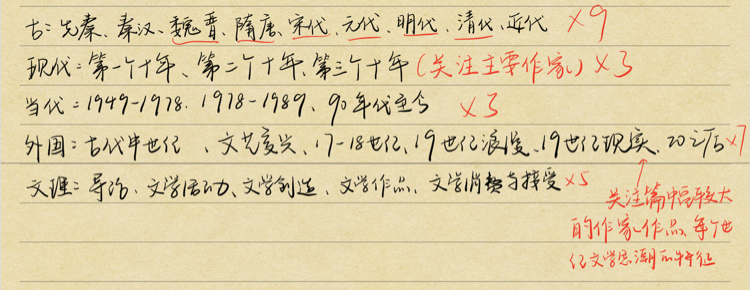 古:先秦、秦汉、魏晋、隋唐、宋代、元代、明代、清代、近代 ×9
现代:第一个十年、第二个十年、第三个十年(关注主要作家)×3
当代:1949-1978. 1978-1989、90年代至今 ×3
外国:古代中世纪、文艺复兴、17-18世纪、19世纪浪漫、19世纪现实、20之后×7
文理:导论、文学活动、文学创造、文学作品、文学消费与接受×5
关注篇中占较大
的作家作品、每个世
纪文学思潮的特征